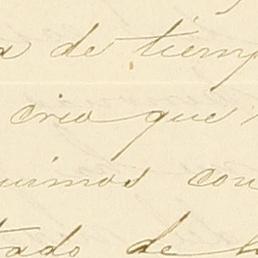 de tiemp
creo que
uimos con
tado de